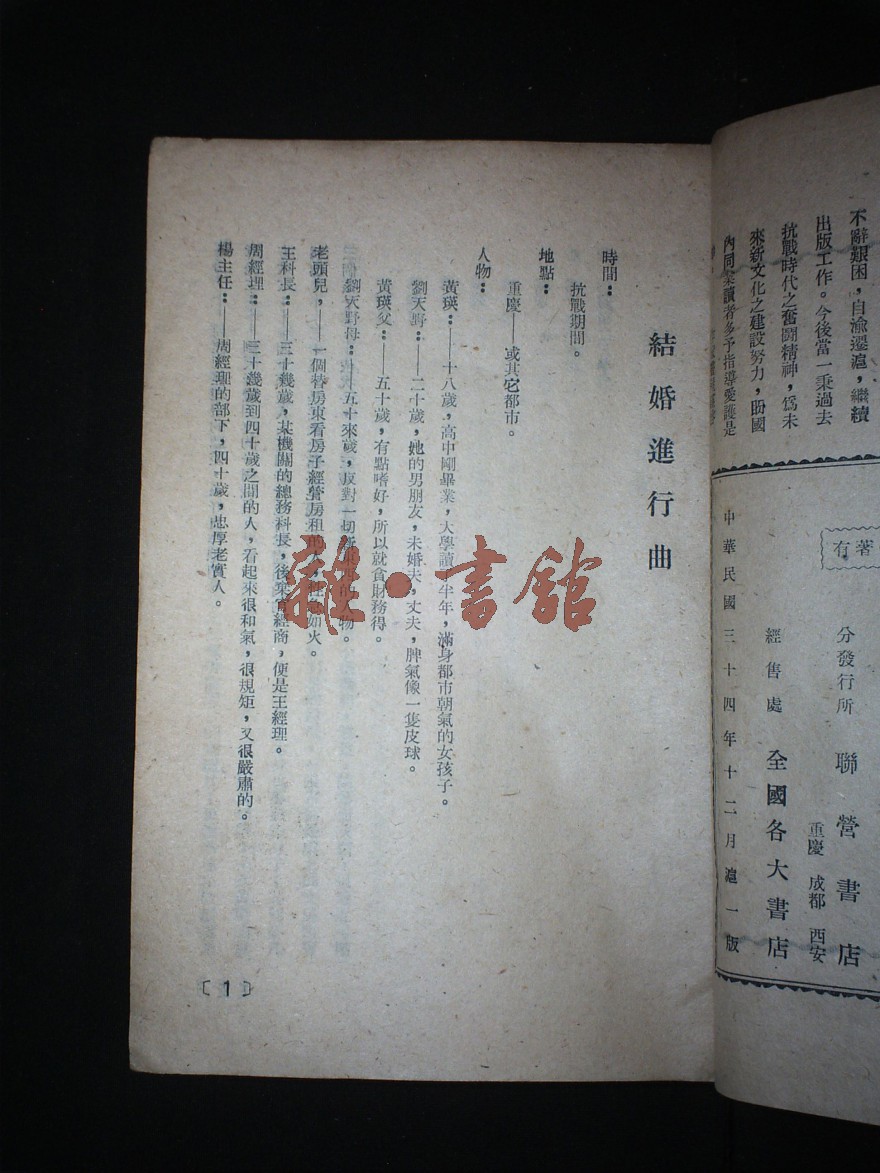 不辭艱困，自渝遷滬，繼續
出版工作。今後當一秉過去
抗戰時代之奮鬪精神，爲未
來新文化之建設努力，盼國
內同業讀者多予指導愛護是
有著
分發行所 聯營書店
重慶 成都 西安
經售處 全國各大書店
中華民國三十四年十二月滬一版
結婚進行曲
時間：
抗戰期間。
地點：
重慶——或其它都市。
人物：
黃瑛：——十八歲，高中剛畢業，大學讀 半年，滿身都市朝氣的女孩子。
劉天野：——二十歲，她的男朋友，未婚夫，丈夫，脾氣像一隻皮球。
黃瑛父：——五十歲，有點嗜好，所以就貪財務得。
劉天野母：——五十來歲，反對一切 的 物。
老頭兒，——一個替房東看房子經管房租的人，性急如火。
王科長：——三十幾歲，某機關的總務科長，後棄官經商，便是王經理。
周經理：——三十幾歲到四十歲之間的人，看起來很和氣，很規矩，又很嚴肅的。
楊主任：——周經理的部下，四十歲，忠厚老實人。
〔1〕
雜·書館